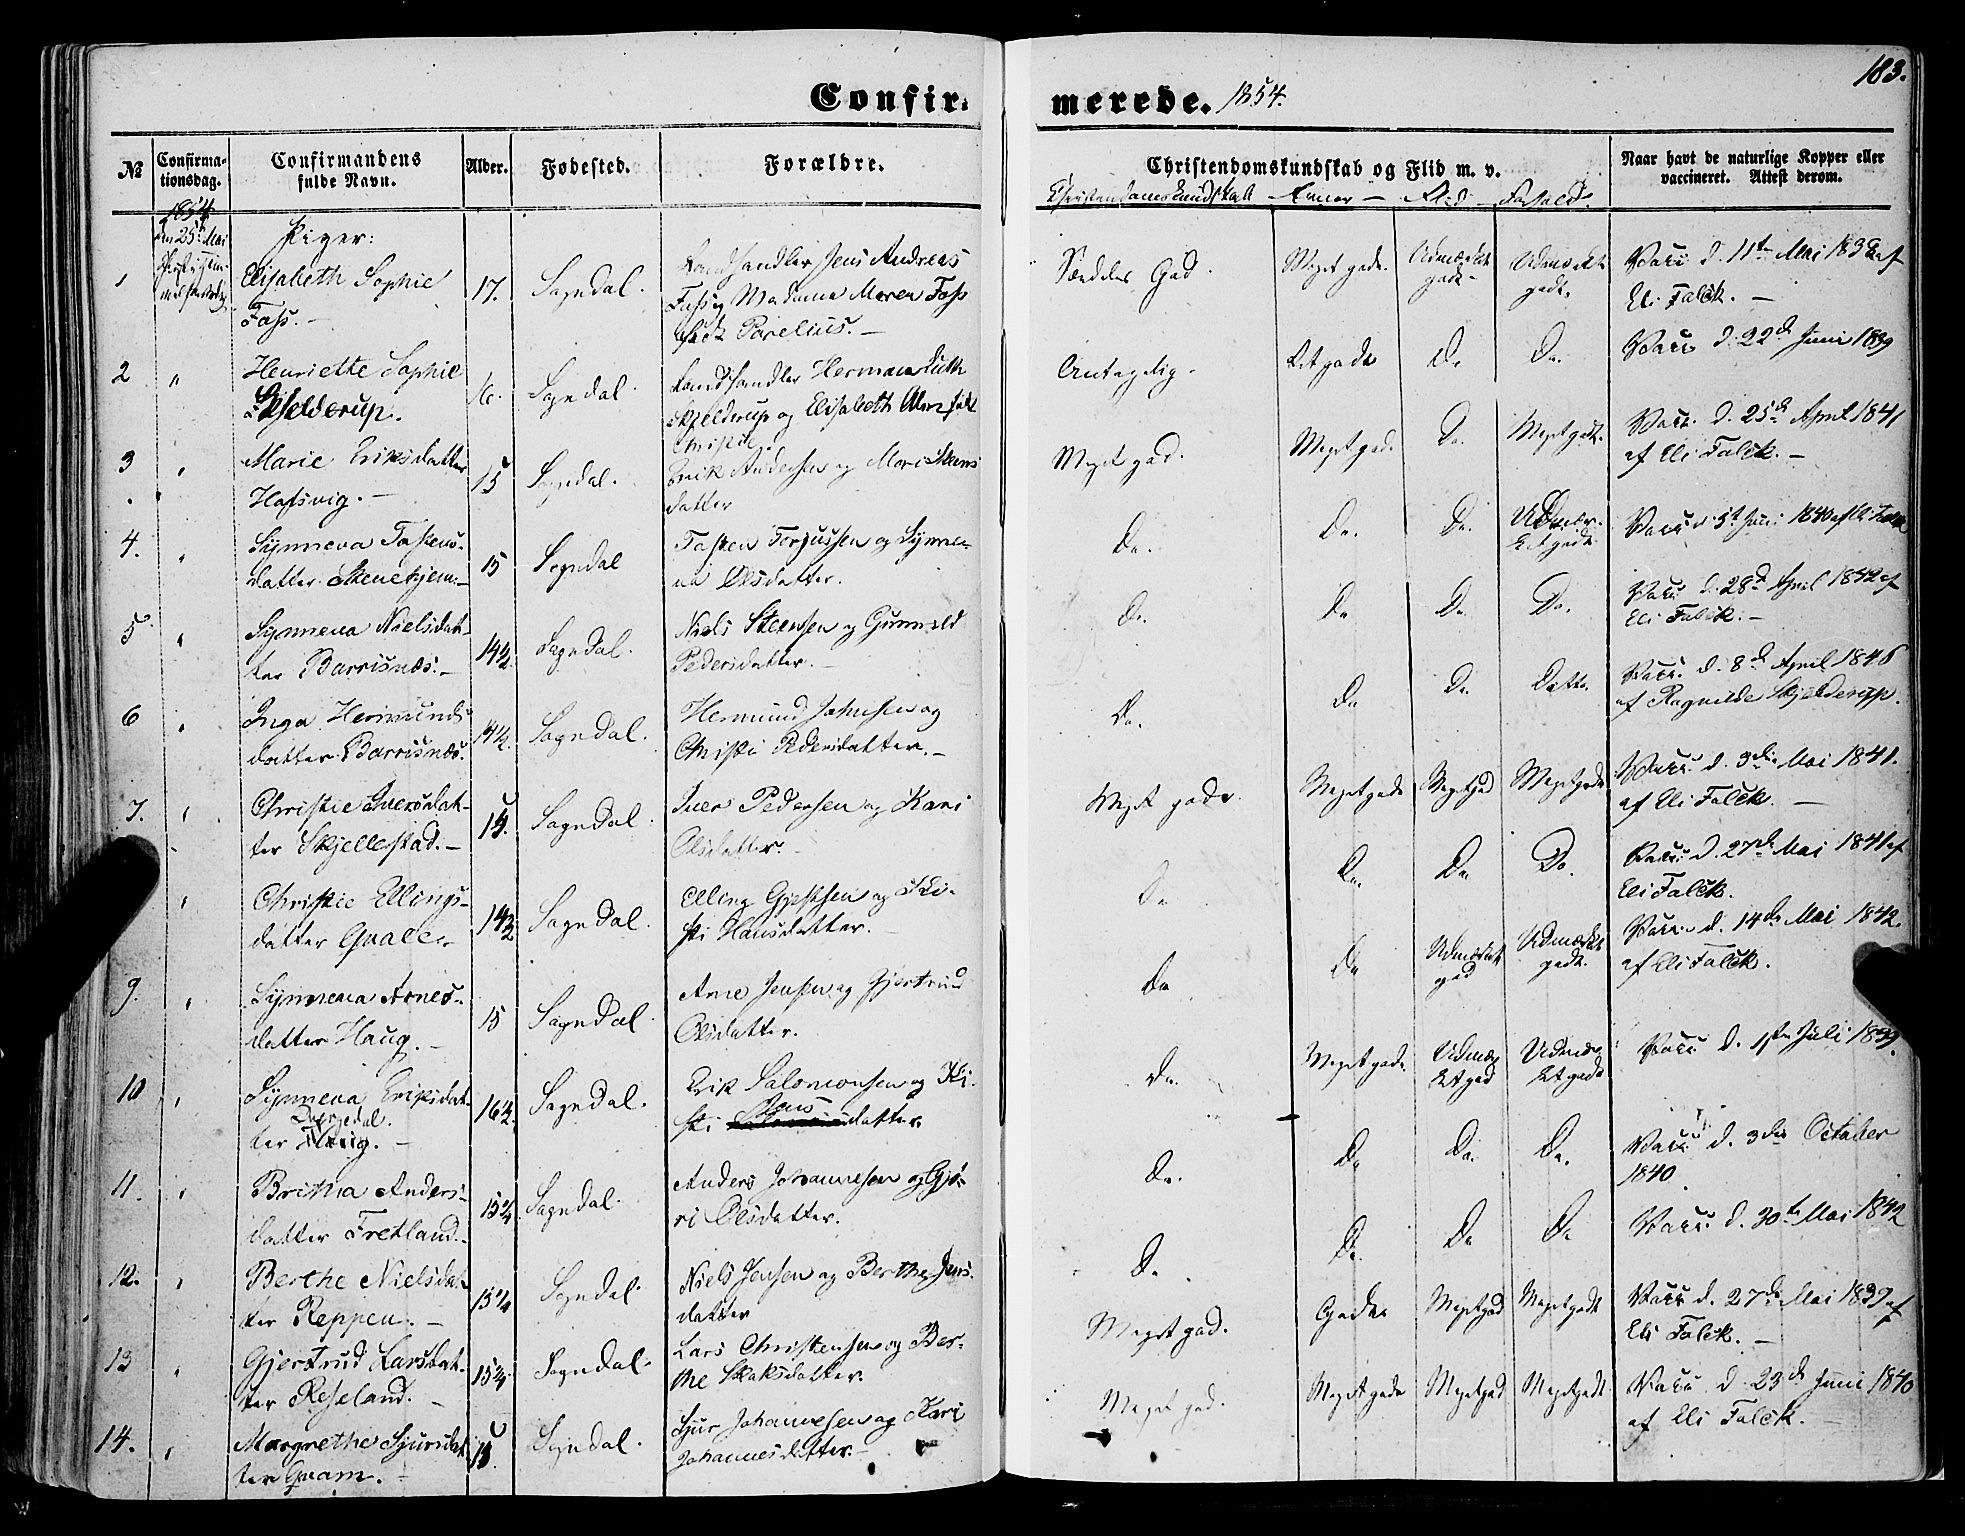 183.
Confir-
merede. 1854.
№
Confirma-
tionsdag.
Confirmandens
fulde Navn.
Alder.
Fødested.
Forældre.
Christendomskundskab og Flid m. v.
Naar havt de naturlige Kopper eller
vaccineret. Attest derom.
Christendomskundskab - Evner - Flid - Forhold.
1854
den 25de Mai
Piger:
1
Elisabeth Sophie
Fass. -
17.
Sogndal.
Landhandler Jens Andreas
Fass og Madame Maren Fass
født Parelius. -
Særdeles God.
Meget gode.
Udmærket
god -
Udmærket
godt.
Vacc. d. 11te Mai 1838 af
Eli Falck. -
2
"
Henriette Sophie
Skjelderup.
16.
Sogndal.
Landhandler Herman Ruth
Skjelderup og Elisabeth født
Christie.
Antagelig.
Ret gode
Do
Do.
Vacc. d. 22de Juni 1839
3
"
Marie Eriksdatter
Hafsvig. -
15
Sogndal.
Erik Andersen og Mari
datter
Meget god.
Meget gode.
Do.
Meget godt.
Vacc. d. 25de April 1841
af Eli Falck. -
4.
"
Synneva Tostens-
datter Stenehjem. -
15
Sogndal
Tosten Torjussen og Synne-
va Olsdatter.
Do.
Do.
Do.
Udmær-
ket godt.
Vacc. d. 5te Juni 1840 af Eli Falck
5
"
Synneva Nielsdat-
ter Barrisnæs. -
14½
Sogndal.
Niels Steensen og Gunnild
Pedersdatter. -
Do.
Do
Do
Do.
Vacc. d. 28de April 1842 af
Eli Falck. -
6
"
Inga Hermunds-
datter Barrisnæs.
14½
Sogndal.
Hermund Johnsen og
Christi Pedersdatter. -
Do.
Do
Do
Ditto.
Vacc. d. 8de April 1846
af Ragnilde Skjelderup.
7.
"
Christie Iversdat-
ter Skjellestad. -
15.
Sogndal.
Iver Pedersen og Kari
Olsdatter. -
Meget gode.
Meget gode
Meget god
Meget godt
Vacc. d. 3die Mai 1841.
af Eli Falck. -
"
Christie Ellings-
datter Qvale. -
14½
Sogndal.
Elling Gjestsen og Kri-
sti Hansdatter. -
Do
Do.
Do
Do.
Vacc. d. 27de Mai 1841 af
Eli Falck.
9.
"
Synneva Arnes-
datter Haug. -
15
Sogndal.
Arne Jensen og Gjertrud
Olsdatter.
Do
Do
Udmærket
god
Udmærket
godt.
Vacc. d. 14de Mai 1842.
af Eli Falck.
10
"
Synneva Eriksdat-
ter
16½
Sogndal.
Erik Salomonsen og Kri-
sti datter.
Do.
Meget gode
Udmær-
ket god
Udmær-
ket godt
Vacc. d. 1ste Juli 1839.
11.
"
Britha Anders-
datter Fretland. -
15¾
Sogndal.
Anders Johannesen og Gjø-
ri Olsdatter.
Do.
Do
Do.
Do.
Vacc. d. 3die October
1840
12.
"
Berthe Nielsdat-
ter Reppen. -
15¼
Sogndal.
Niels Jensen og Berthe Jens-
datter
Do
Do.
Do
Do
Vacc. d. 30te Mai 1842
13
"
Gjertrud Larsdat-
ter Røseland. -
15¾
Sogndal.
Lars Christensen og Ber-
the Skaksdatter.
Meget god.
Gode
Meget god
Meget godt
Vacc. d. 27de Mai 1839 af
Eli Falck. -
14.
"
Margrethe Sjursdat-
ter Qvam. -
15
Sogndal.
Sjur Johannesen og Kari
Johannesdatter. -
Meget god.
Meget gode
Meget god
Meget godt
Vacc. d. 23de Juni 1840
af Eli Falck.